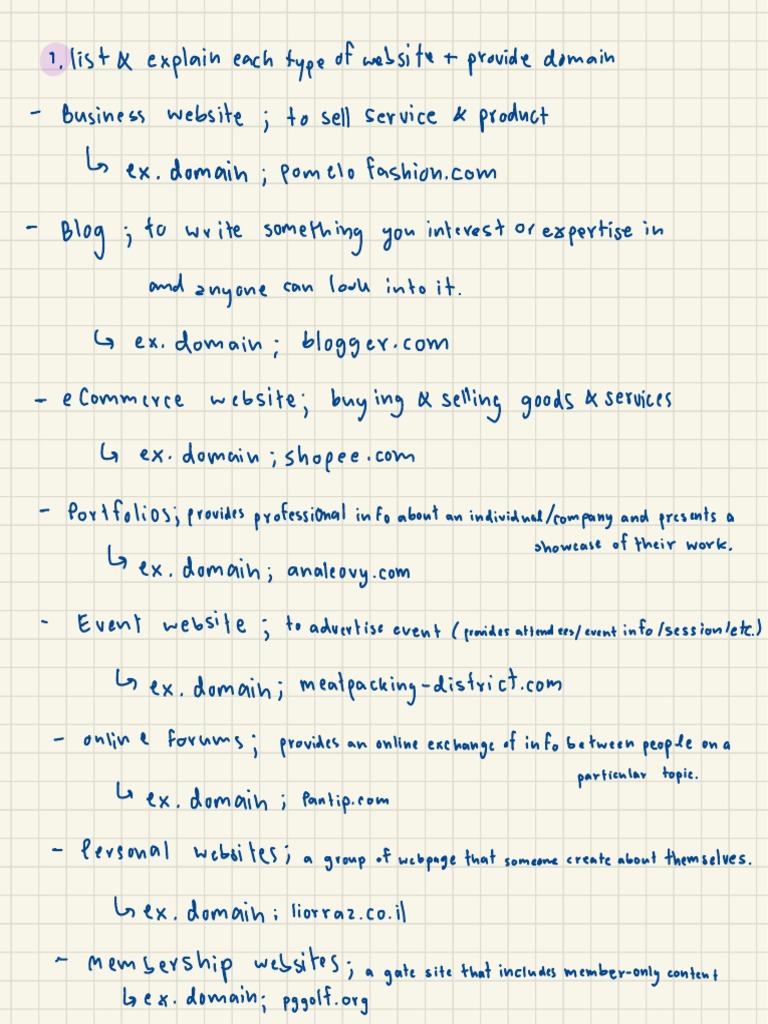 1. list & explain each type of website + provide domain
- Business website ; to sell service & product
↳ ex. domain ; pomelo fashion.com
- Blog ; to write something you interest or expertise in
and anyone can look into it.
↳ ex. domain ; blogger.com
- eCommerce website ; buying & selling goods & services
↳ ex. domain ; shopee.com
- Portfolios ; provides professional info about an individual/company and presents a
showcase of their work.
↳ ex. domain ; analeovy.com
- Event website ; to advertise event (provides attendees/event info/session/etc.)
↳ ex. domain ; meatpacking-district.com
- online forums ; provides an online exchange of info between people on a
particular topic.
↳ ex. domain ; Pantip.com
- Personal websites ; a group of webpage that someone create about themselves.
↳ ex. domain ; liorraz.co.il
- membership websites ; a gate site that includes member-only content
↳ ex. domain ; pggolf.org